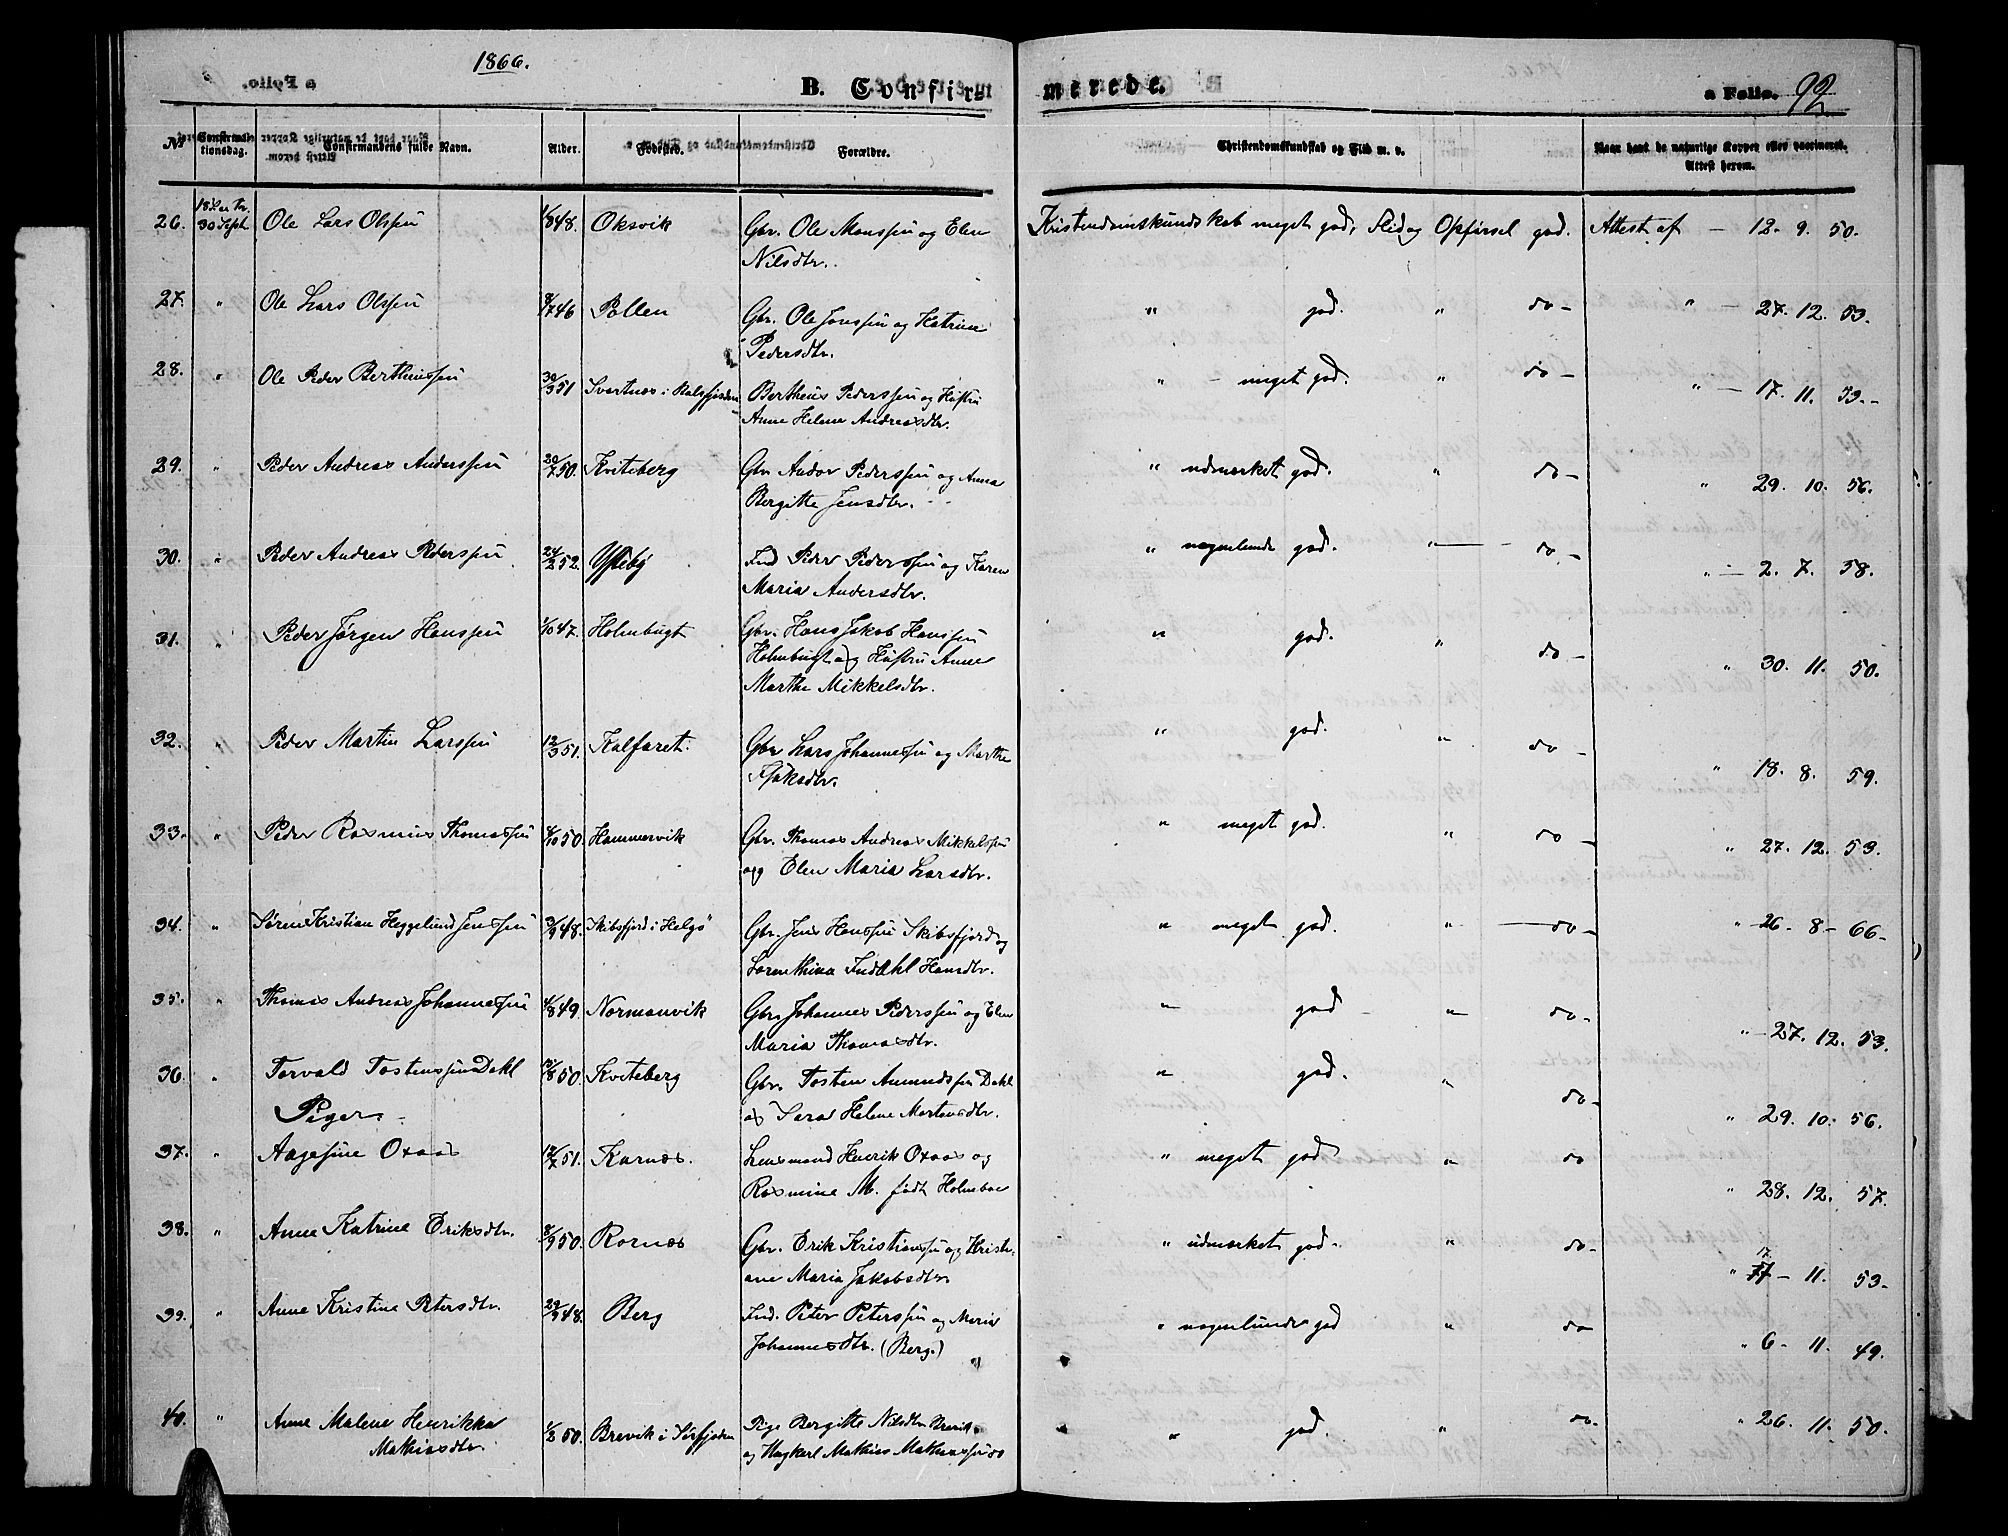 1866.
B. Confirmerede.
a Folio. 92.
No. Confirmationsdag. Confirmandens fulde Navn. Alder. Fødested. Forældre. Christendomskundskab og Flid m. v. Naar havt de naturlige Kopper eller vaccineret. Attest herom.
26. 30 Sept. Ole Lars Olssen 48. Oksvik Gbr. Ole Monssen og Elen Kristendomskundskab meget god, Flid og Opførsel god. Attest af — 12. 9. 50.
Nilsdtr.
27. " Ole Lars Olssen 46 Pollen Gbr. Ole Jonssen og Katrine " god. " do - " — 27. 12. 53.
Pedersdtr.
28. " Ole Peder Bertheussen 30/3 51 Svartnæs i Balsfjorden Bertheus Pederssen og Hustru " — meget god. " do - " — 17. 11. 53.-
Anne Helene Andreasdtr.
29. " Peder Andreas Anderssen 30/7 50. Kviteberg Gbr Andor Pederssen og Anna " udmærket god. " do - " 29. 10. 56.
Bergitte Jensdtr.
30. " Peder Andreas Pederssen 24/2 52. Ysteby Ind Peder Pederssen og Karen " nogenlunde god. " — do - " — 2. 7. 58.
Maria Andersdtr.
31. " Peder Jørgen Hanssen 1/10 47. Holmbugt Gbr. Hans Jakob Hanssen " god. " do - " 30. 11. 50.
Holmbugt og Hustru Anne
Marthe Mikkelsdtr.
32. " Peder Martin Larssen 12/3 51. Kalfaret. Gbr Lars Johannessen og Marthe " god. " do - " 18. 8. 59.
Isaksdtr.
33. " Peder Rasmus Thomassen 50. Hammervik Gbr. Thomas Andreas Mikkelssen " meget god. " do - " 27. 12. 53.
og Elen Maria Larsdtr.
34. " Søren Kristian Heggelund Jenssen 3/9 48. Skibsfjord i Helgö Gbr. Jens Hanssen Skibsfjord og " meget god. " — do - " 26 - 8 - 66-
Lorenthina Indahl Hansdtr.
35. " Thomas Andreas Johannessen 4/8 49. Normanvik Gbr. Johannes Pederssen og Elen " god " do - " 27. 12. 53.
Maria Thomasdtr.
36. " Torvald Tostenssen Dahl 50 Kviteberg Gbr. Tosten Amundssen Dahl " god. " do - " 29. 10. 56.
og Sara Helene Mortensdtr.
Piger.
37. " Aagesine Oxaas 12/7 51. Karnes. Lensmand Henrik Oxaas og " meget god " do " 28. 12. 57.
Rasmine M. født Holmboe
38. " Anne Katrine Eriksdtr. 8/9 50. Rornes Gbr. Erik Kristianssen og Kristi- " udmærket god. " do - " 17 - 11. 53-
ane Maria Jakobsdtr
39. " Anne Kristine Petersdtr. 29/9 48. Berg Ind. Peter Peterssen og Maria " nogenlunde god " do " 6 - 11. 49.
Johannesdtr. (Berg.)
40. " Anne Malene Henrikka 1/2 50. Brevik i Sørfjorden Pige Bergitte Nilsdtr Brevik " god. " do. " 26. 11. 50.
Mathiasdtr. og Ungkarl Mathias Mathiassen do